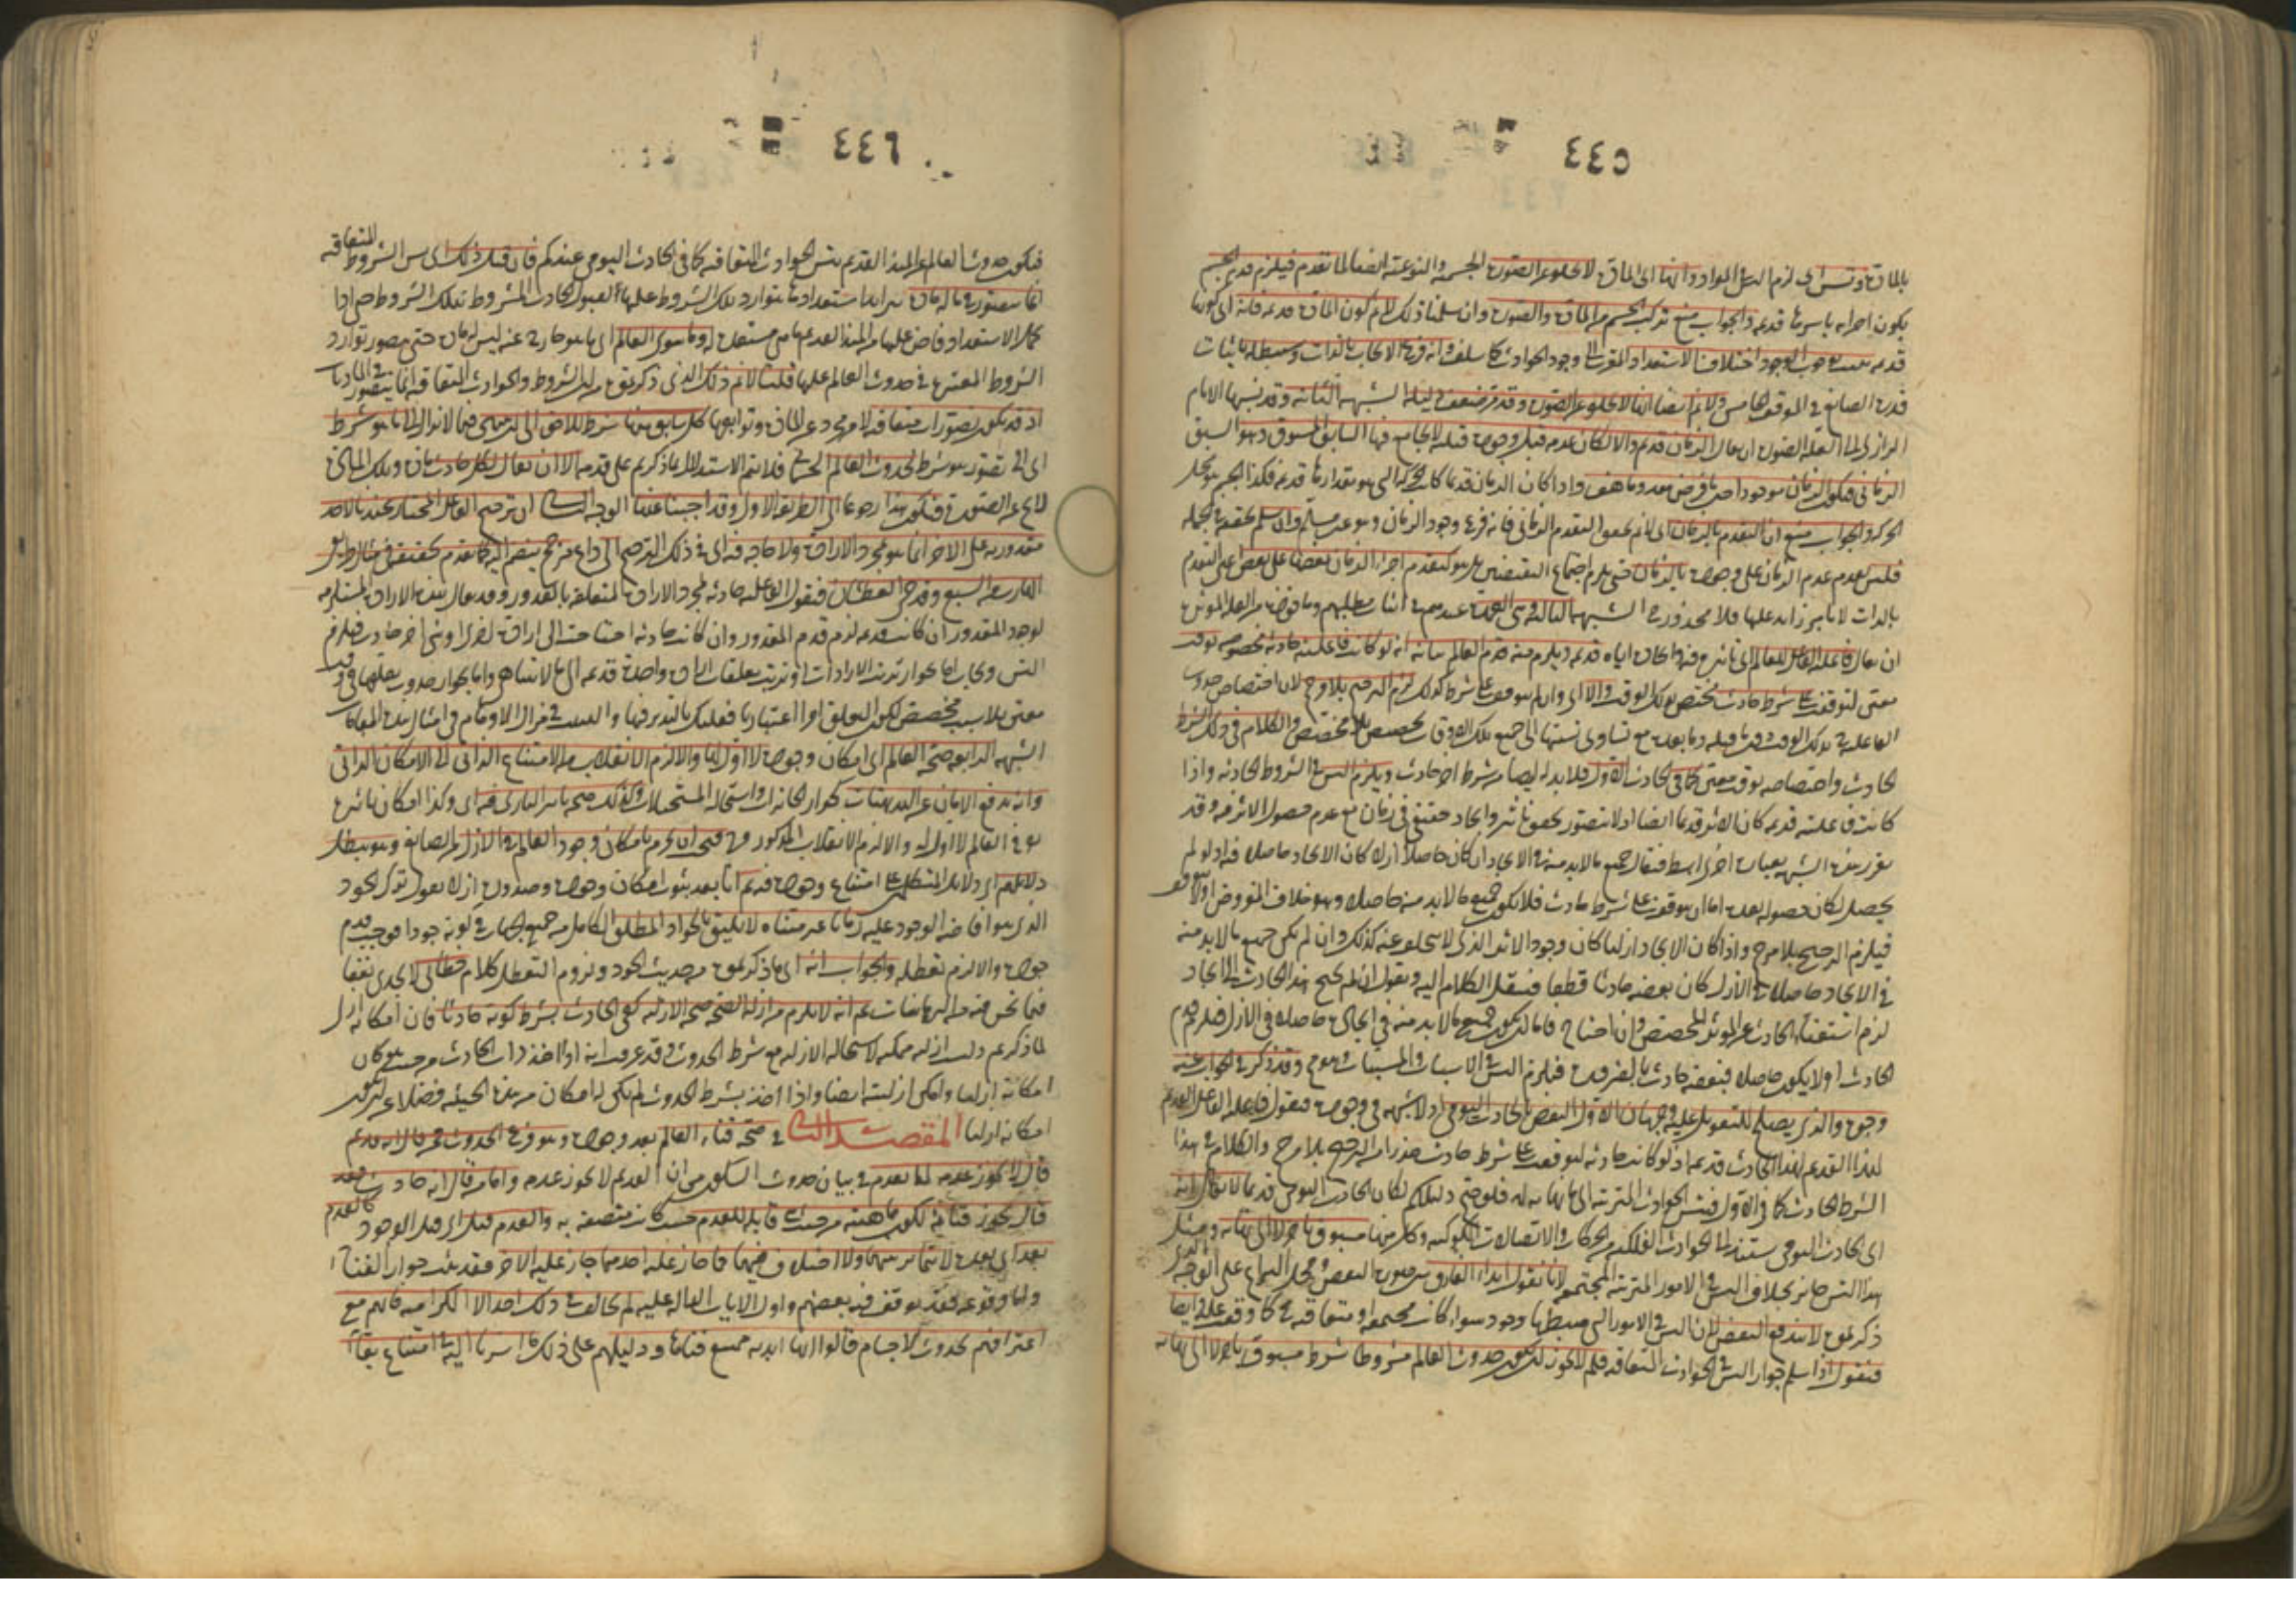 ٤٤٥
بالمادة وتس اى لزم التس فى المواد وانها اى المادة لا تخلو عن الصورة الجسمية والنوعية ايضا لما تقدم فيلزم قدم الجسم
يكون اجزائه باسرها قديمة والجواب منع تركب الجسم من المادة والصورة وان سلمنا ذلك لا نم كون المادة قديمة فانه اى كونها
قديمة اختلاف الاستعداد المقرب الى وجود الحوادث كما سلف وانه فرع الايجاب بالذات وسنبطله باثبات
قدرة الصانع فى الموقف الخامس ولا نم ايضا انها لا تخلو عن الصورة وقد مر ضعف دليله الشبهة الثانية وقد نسبها الامام
الرازى الى العلة الصورية ان يقال الزمان قديم والا لكان عدمه قبل وجوده قبلية لا يجامع فيها السابق المسبوق وهو السبق
الزمانى فيكون الزمان موجودا حين ما فرض معدوما هف واذا كان الزمان قديما كان الحركة التى هو مقدارها قديمة فكذا الجسم هو محل
الحركة والجواب منع ان التقدم بالزمان اى لا نم تحقق التقدم الزمانى فانه فرع وجود الزمان وهو غير مسلم وان سلم تحققه فى الجملة
فليس تقدم عدم الزمان على وجوده بالزمان حتى يلزم اجتماع النقيضين بل هو كتقدم اجزاء الزمان بعضها على بعض اعنى التقدم
بالذات لا بامر زايد عليها فلا محذور فيه الشبهة الثالثة وهى العمدة عندهم فى اثبات مطلبهم وماخوذة من العلة المؤثرة
ان يقال فاعلية الفاعل للعالم اى تاثيره فيه وايجاده اياه قديمة ويلزم منه قدم العالم بيانه انه لو كانت فاعليته حادثة مخصوصة بوقت
معين لتوقفت على شرط حادث مختص بذلك الوقت والا اى وان لم يتوقف على شرط كذلك لزم الترجيح بلا مرجح لان اختصاص حدوث
الفاعلية بذلك الوقت دون ما قبله وما بعده مع تساوى نسبتها الى جميع تلك الاوقات تخصيص بلا مخصص والكلام فى ذلك الشرط
الحادث واختصاصه بوقت معين كما فى الحادث الاول فلا بد له ايضا من شرط اخر حادث ويلزم التس فى الشروط الحادثة واذا
كانت فاعليته قديمة كان الاثر قديما ايضا اذ لا يتصور تحقق تاثير وايجاد حقيقى فى زمان مع عدم حصول الاثر فيه وقد
يقرر هذه الشبهة بعبارة اخرى ابسط فيقال جميع ما لا بد منه فى الايجاد ان كان حاصلا ازلا كان الايجاد حاصلا فيه اذ لو لم
يحصل لكان حصوله بعده اما ان يتوقف على شرط حادث فلا يكون جميع ما لا بد منه حاصلا وهو خلاف المفروض او لا يتوقف
فيلزم الترجيح بلا مرجح واذا كان الايجاد ازليا كان وجود الاثر الذى لا يتخلف عنه كذلك وان لم يكن جميع ما لا بد منه
فى الايجاد حاصلا فى الازل كان بعضه حادثا قطعا فننقل الكلام اليه ونقول ان لم يحتج هذا الحادث الى ايجاد
لزم استغناء الحادث عن المؤثر المخصص وان احتاج فاما ان يكون جميع ما لا بد منه فى ايجاده حاصلا فى الازل فيلزم قدم
الحادث او لا يكون حاصلا فبعضه حادث بالضرورة فيلزم التس فى الاسباب والمسببات وهو مح وقد ذكر فى الجواب عنه
وجوه والذى يصلح للتعويل عليه وجهان الاول النقض بالحادث اليومى اذ لا شبهة فى وجوده فنقول فاعلية الفاعل القديم
لهذا الحادث قديمة اذ لو كانت حادثة لتوقفت على شرط حادث حذرا من الترجيح بلا مرجح والكلام فى هذا
الشرط الحادث كما فى الاول فيتس الحوادث المترتبة الى ما لا نهاية له فلو صح دليلكم لكان الحادث اليومى قديما لا يقال انه
اى الحادث اليومى يستند الى الحوادث الفلكية من الحركات والاتصالات الكوكبية وكل منها مسبوق باخر لا الى نهاية ومثل
هذا التس جائز بخلاف التس فى الامور المترتبة المجتمعة لانا نقول ابداء الفارق بين صورة النقض ومحل النزاع على الوجه الذى
ذكرتموه لا يدفع النقض لان التس فى الامور التى ضبطها وجود سواء كانت مجتمعة او متعاقبة مح كما وقفت عليه ايضا
فنقول اذا سلم جواز التس فى الحوادث المتعاقبة فلم لا يجوز ان يكون حدوث العالم مشروطا بشرط مسبوق باخر لا الى نهاية
٤٤٦
فيكون حدوث العالم عن المبدا القديم بتس الحوادث المتعاقبة كما فى الحادث اليومى عندكم فان قيل ذلك اى تس الشروط المتعاقبة
انما يتصور فيما له مادة يتزايد استعدادها بتوارد تلك الشروط عليها لقبول الحادث المشروط بتلك الشروط حتى اذا
كمل الاستعداد فاض عليها من المبدا القديم ما هى مستعدة له وما سوى العالم اى ما هو خارج عنه ليس له مادة حتى يتصور توارد
الشروط المعتبرة فى حدوث العالم عليها قلنا لا نم ذلك الذى ذكرتموه من ان الشروط والحوادث المتعاقبة انما يتصور فى الماديات
اذ قد يكون تصورات متعاقبة لامر مجرد عن المادة وتوابعها كل سابق منها شرط للاحق الى ان ينتهى فيما لا يزال الى ما هو شرط
اى الى تصور هو شرط لحدوث العالم الجسمى فلا يتم الاستدلال بما ذكرتم على قدمه الا ان يقال لكل حادث مادة وتلك المادة
لا تخ عن الصورة فيكون هذا رجوعا الى الطريقة الاولى وقد اجبنا عنها الوجه الثانى ان ترجيح الفاعل المختار عندنا لاحد
مقدوريه على الاخر انما هو بمجرد الارادة ولا حاجة فيه اى فى ذلك الترجيح الى داع مرجح ينضم اليه كما تقدم تحقيقه فى مثال طريقى
الهارب من السبع وقدحى العطشان فنقول الفاعلية حادثة بمجرد الارادة المتعلقة بالمقدور وقد يقال هذه الارادة المستلزمة
لوجود المقدور ان كانت قديمة لزم قدم المقدور وان كانت حادثة احتاجت الى ارادة اخرى او شئ اخر حادث فيلزم
التس ويجاب اما بجواز ترتب الارادات او ترتب تعلقات ارادة واحدة قديمة الى ما لا يتناهى واما بجواز حدوث تعلقها فى وقت
معين بلا سبب مخصص لكون التعلق امرا اعتباريا فعليك بالتدبر فيها والتثبت فى مزال الاقدام فى امثال هذه المقامات
الشبهة الرابعة صحة العالم اى امكان وجوده لا اول لها والا لزم الانقلاب من الامتناع الذاتى الى الامكان الذاتى
وانه يرفع الامان عن البديهيات كجواز الجائزات واستحالة المستحيلات وكذلك صحة تاثير البارى فيه اى وكذا امكان تاثيره
تع فى العالم لا اول له والا لزم الانقلاب المذكور وح فنحن نجزم بامكان وجود العالم فى الازل من الصانع وهو يبطل
دلايلكم اى دلايل المتكلمين على امتناع وجوده فيه ثم انا بعد ثبوت امكان وجوده وصدوره ازلا نقول ترك الجود
الذى هو افاضة الوجود عليه زمانا غير متناه لا يليق بالجواد المطلق الكامل من جميع الجهات فى كونه جوادا فوجب قدم
جوده والا لزم تعطله والجواب انه اى ما ذكرتموه من حديث الجود ولزوم التعطل كلام خطابى لا يجدى نفعا
فيما نحن فيه من البرهانيات ثم انه لا يلزم من ازلية الصحة صحة الازلية كما فى الحادث بشرط كونه حادثا فان امكانه ازلى
لما ذكرتم وليست ازليته ممكنة لاستحالة الازلية مع شرط الحدوث وقد عرفت انه اذا اخذ ذات الحادث من حيث هو كان
امكانه ازليا وامكن ازليته ايضا واذا اخذ بشرط الحدوث لم يكن له امكان من هذه الحيثية فضلا عن ان يكون
امكانه ازليا المقصد الثانى فى صحة فناء العالم بعد وجوده وهو فرع الحدوث فمن قال انه قديم
قال لا يجوز عدمه لما تقدم فى بيان حدوث السكون من ان القديم لا يجوز عدمه واما من قال انه حادث فقد
قال يجوز فنائه لكون ماهيته من حيث هى قابلة للعدم حيث كانت متصفة به والعدم قبل اى قبل الوجود كالعدم
بعد اى بعده لا تمايز بينهما ولا اختلاف فيهما فما جاز عليه احدهما جاز عليه الاخر فقد ثبت جواز الفناء
واما وقوعه فقد توقف فيه بعضهم واول الايات الدالة عليه ولم يخالف فى ذلك احد الا الكرامية فانهم مع
اعترافهم بحدوث الاجسام قالوا انها ابدية ممتنع فناؤها ودليلهم على ذلك ما اشرنا اليه فى امتناع بقاء